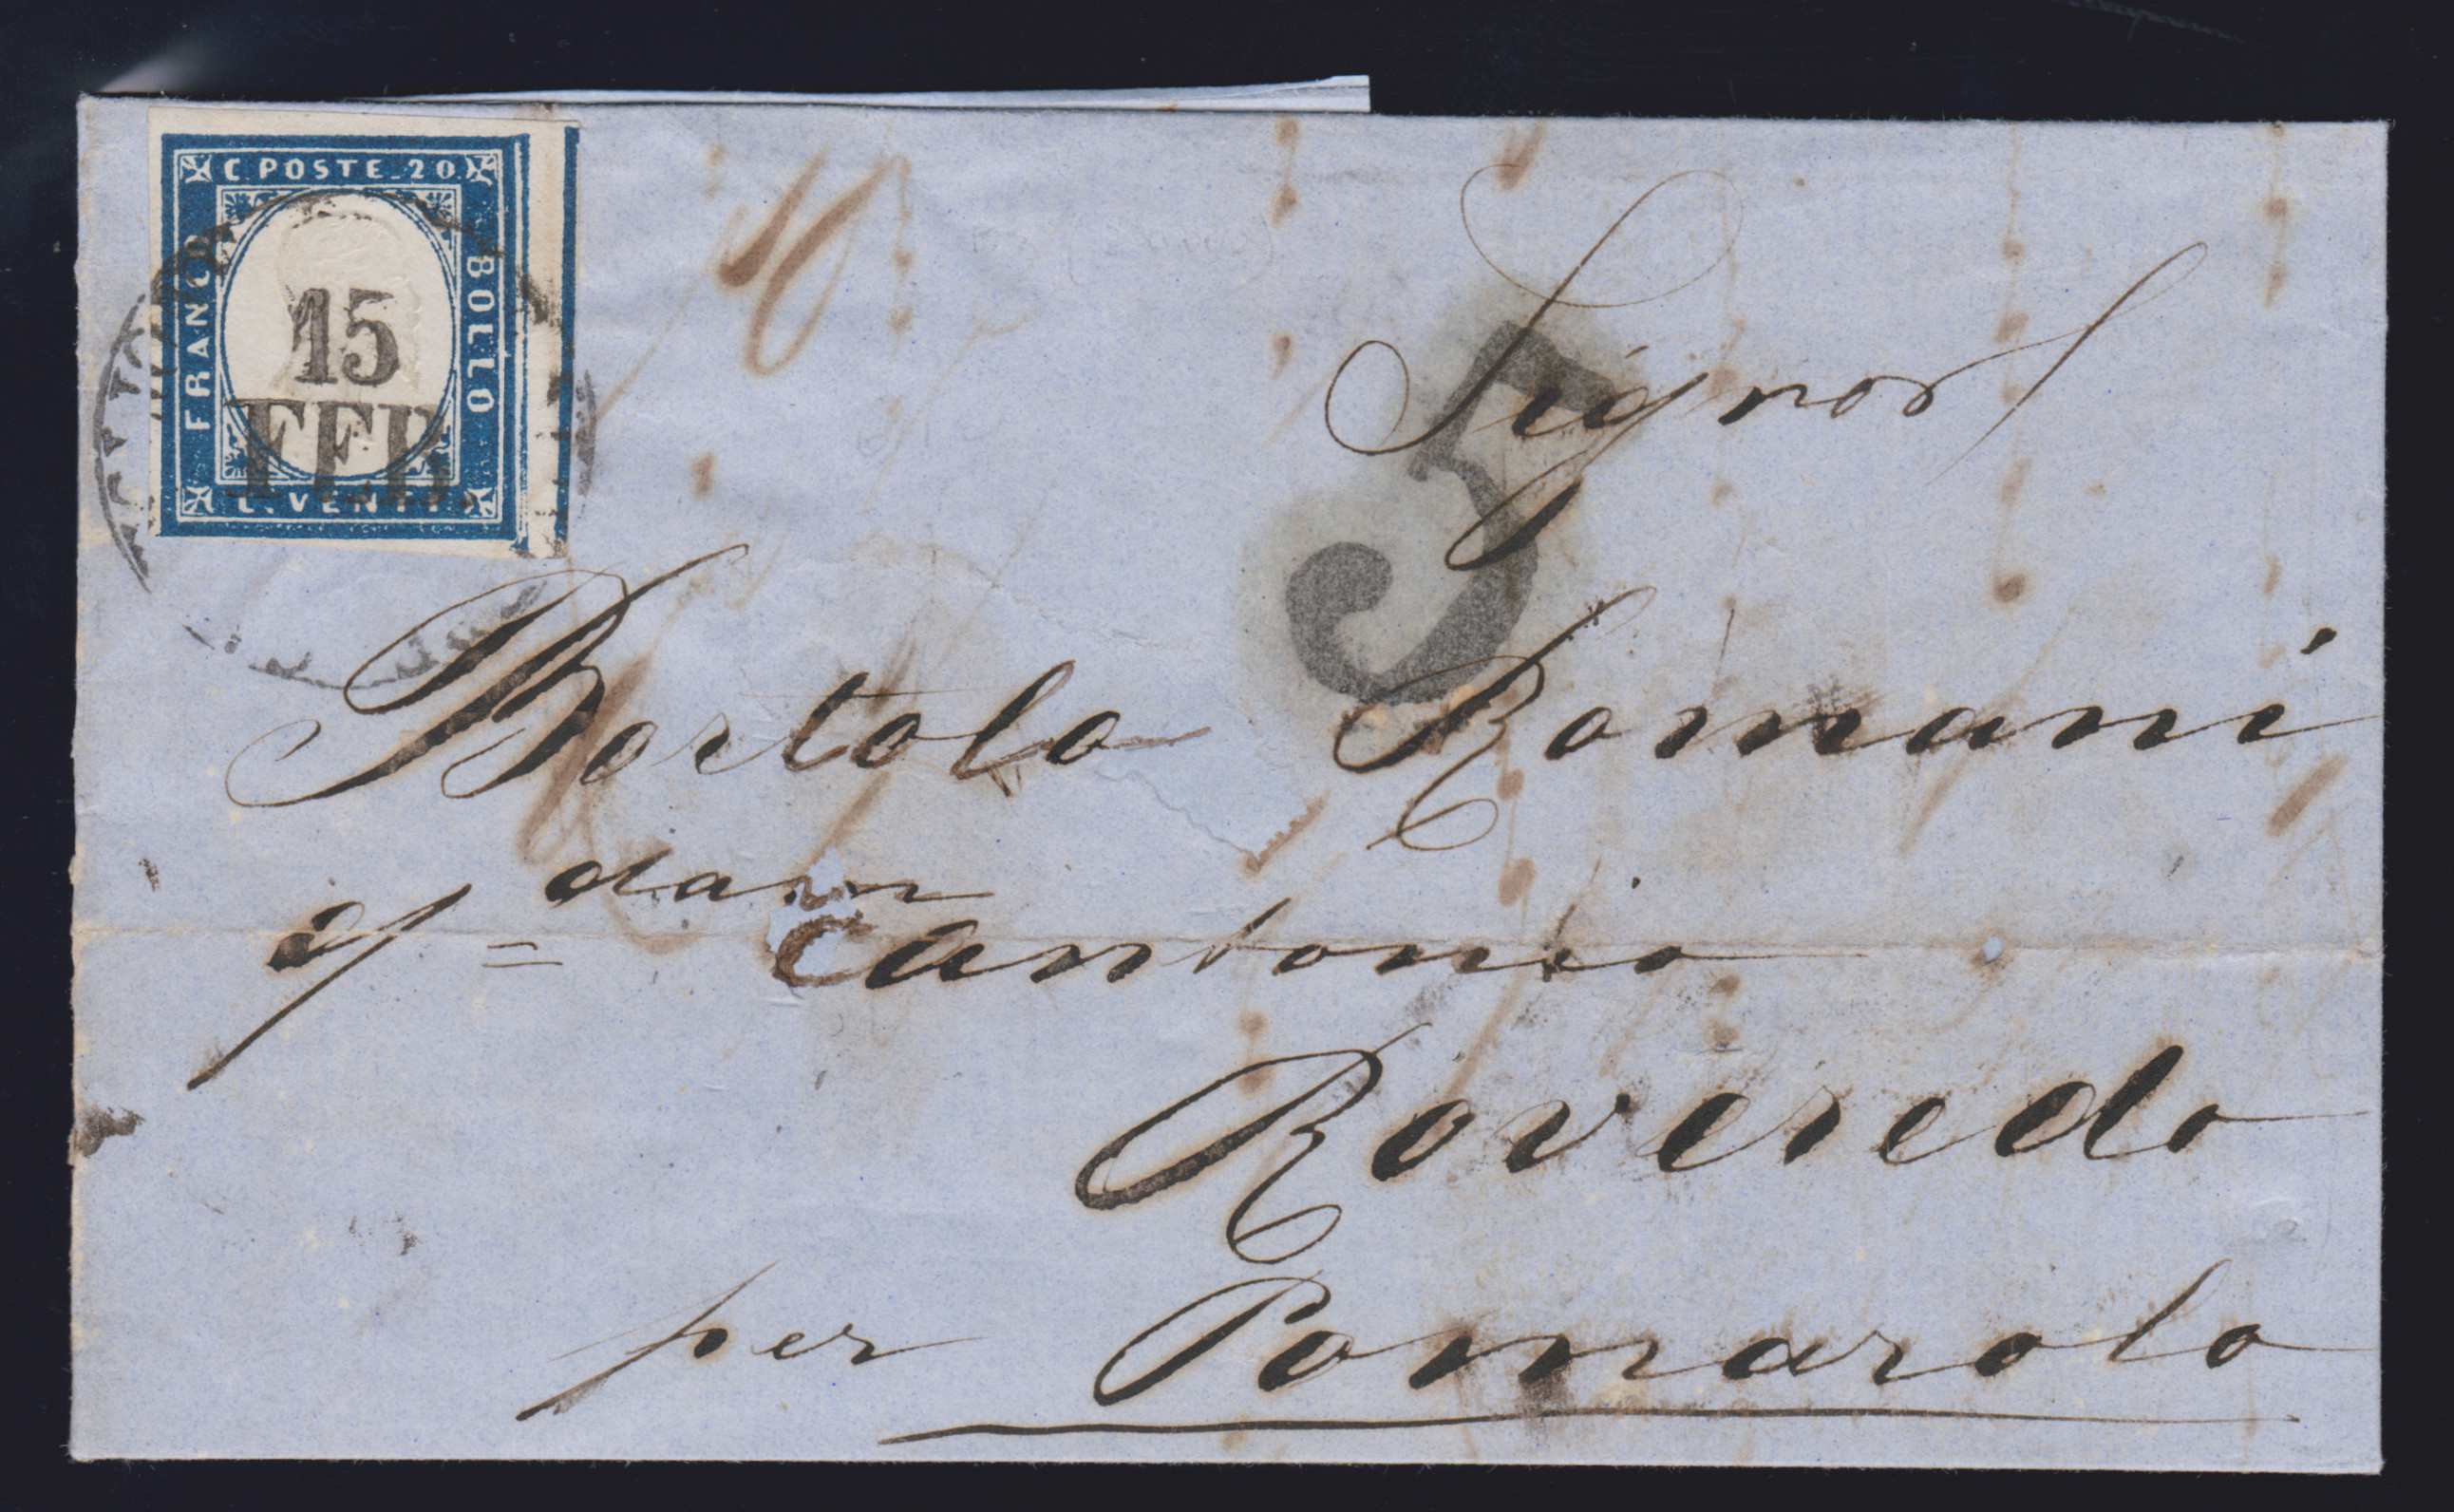 C. POSTE 20
FRANCO
BOLLO
C. VENTI
15
FEB
5
Signor
Bortolo Romani
dan
q= Antonio
Roveredo
per Pomarolo